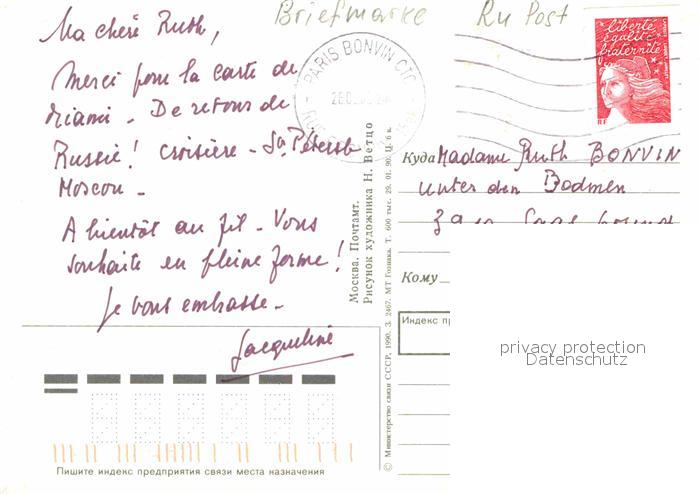 Briefmarke Ru Post
Ma chère Ruth,
Merci pour la carte de
Miami - De retour de
Russie! Croisière - St Pétersb
Moscou -
A bientôt au fil - Vous
souhaite en pleine forme!
Je vous embrasse -
Jacqueline
PARIS BONVIN CTC
liberté
égalité
fraternité
RF
Куда Madame Ruth BONVIN
Unter den Bodmen
Кому
Индекс пр
privacy protection
Datenschutz
Москва. Почтамт.
Рисунок художника Н. Ветцо
© Министерство связи СССР, 1990. З. 2467. МТ Гознака. Т. 600 тыс. 29. 01. 90. Ц. 6 к.
Пишите индекс предприятия связи места назначения